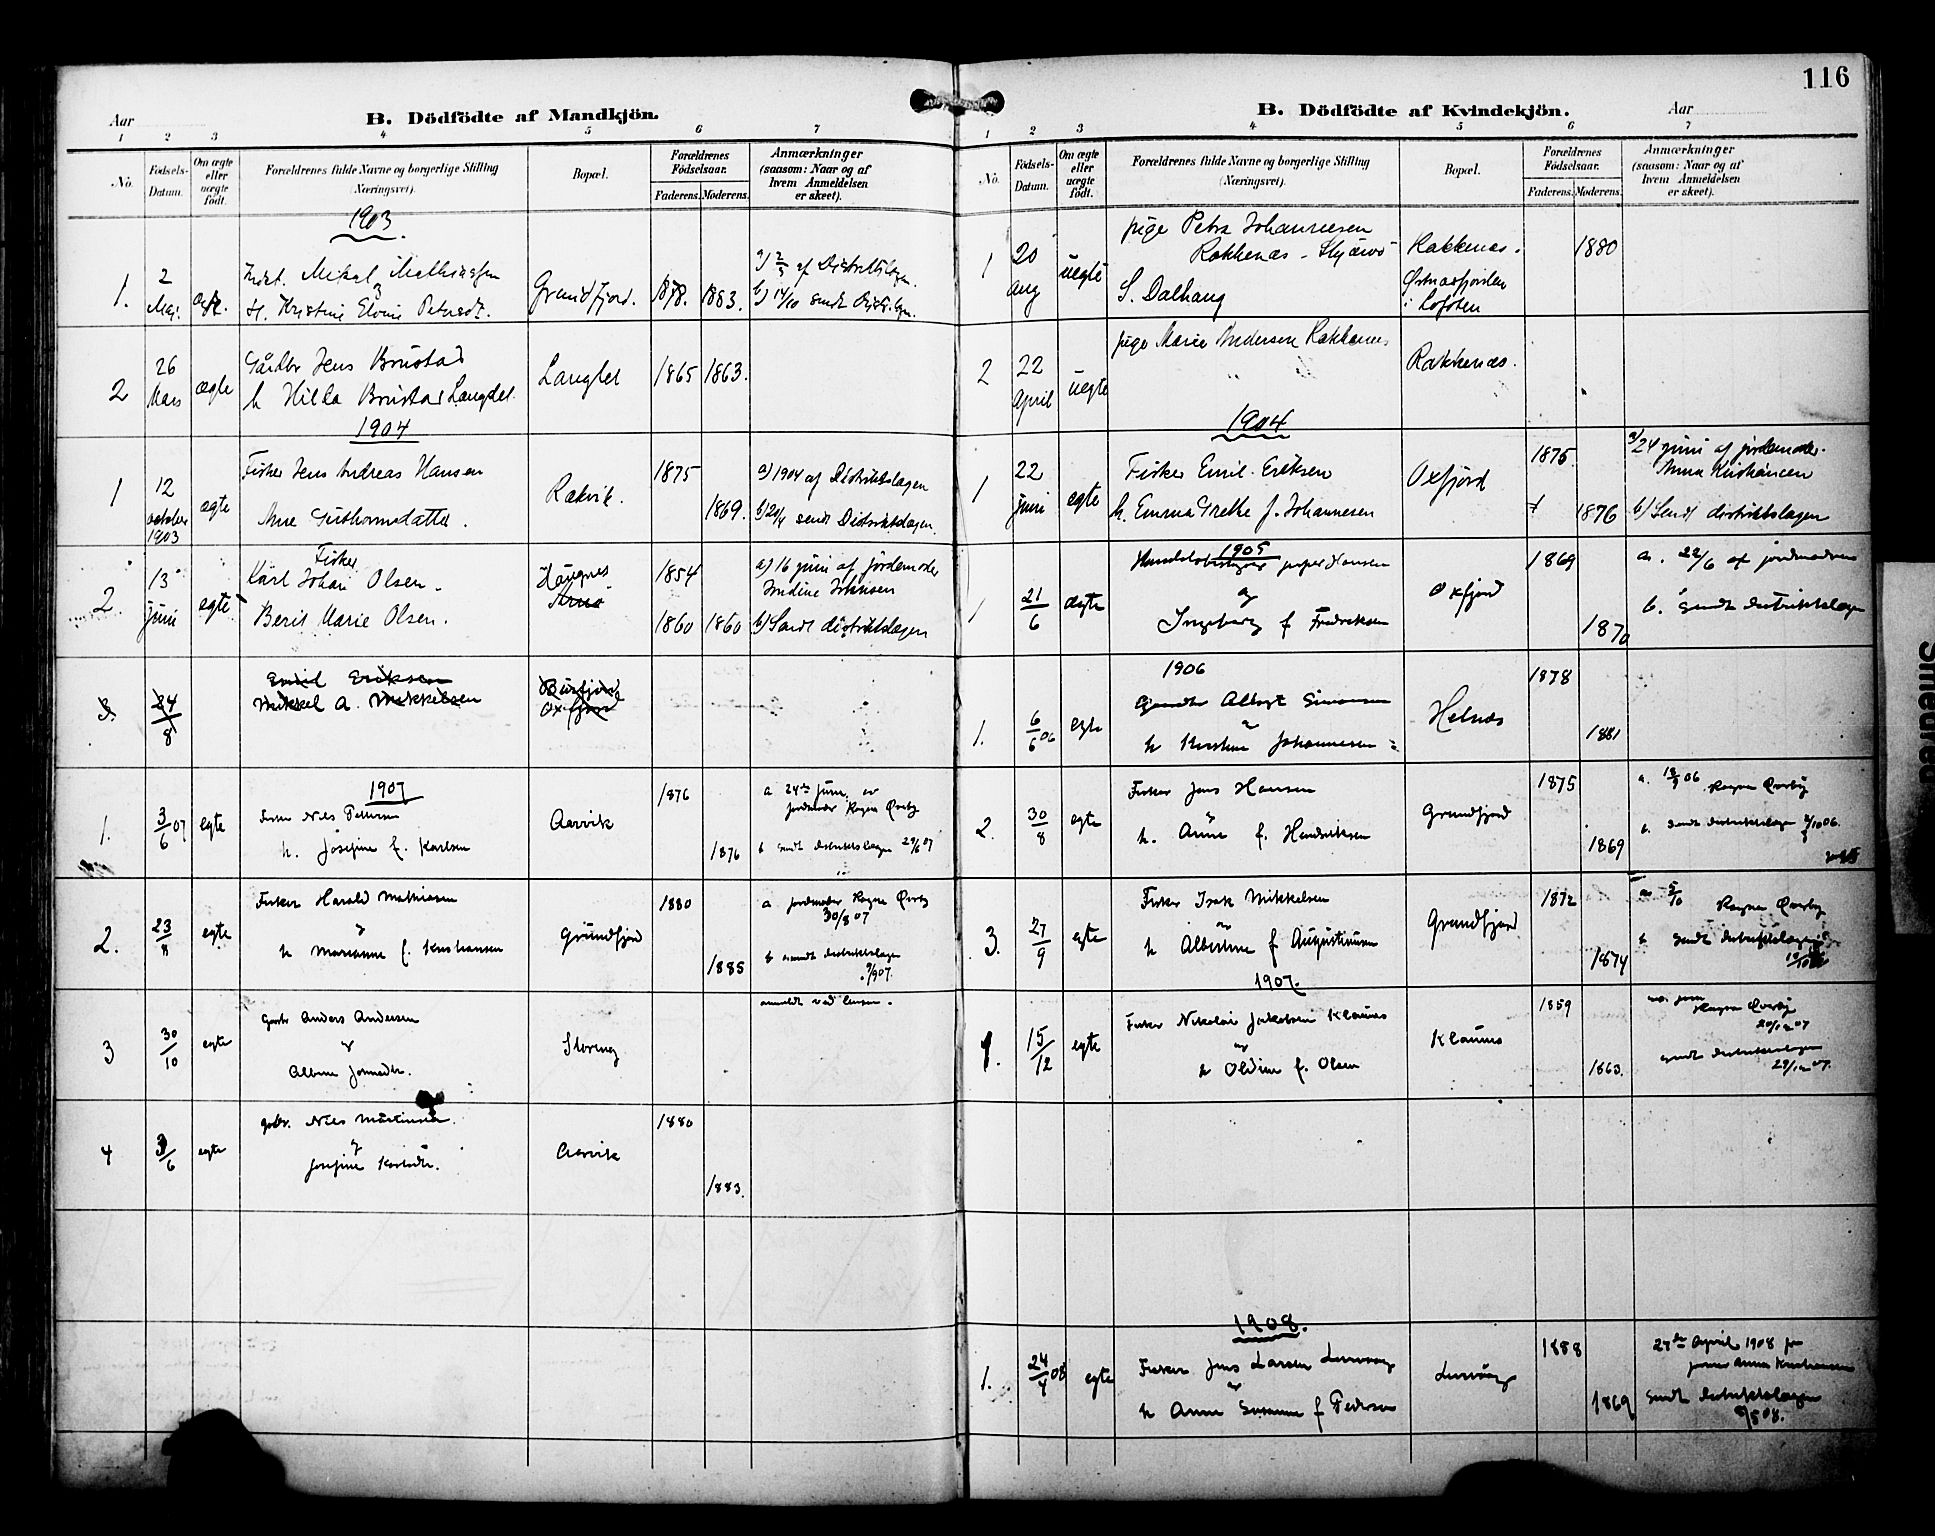 116
Aar
B. Dödfödte af Mandkjön.
1 2 3 4 5 6 7
No.
Fødsels-
Datum.
Om ægte
eller
uægte
født.
Forældrenes fulde Navne og borgerlige Stilling
(Næringsvei).
Bopæl.
Forældrenes
Fødselsaar.
Faderens. Moderens.
Anmærkninger
(saasom: Naar og af
hvem Anmeldelsen
er skeet).
1903
1.
2
Mai.
ægte.
Mikal Mathiassen
og
H. Kristine Elvine Petersdt.
Grundfjord.
1878. 1883.
a) 2/5 af Distriktslægen.
b) 14/10 sendt Distr. lgn.
2
26
Mars
ægte
Gårdbr Jens Brustad
h Hilda Brustad Langdel.
Langdel
1865 1863.
1904
1
12
october
1903
ægte
Fisker Jens Andreas Hansen
Ane Guthormsdatter.
Rakvik.
1875
1869.
a) 1904 af Distriktslægen
b) 20/4 sendt Distriktslægen.
2.
13
juni
egte
Fisker
Karl Johan Olsen.
Berit Marie Olsen.
Haugnes
Arnø
1854
1860 1860
a) 16 juni af jordemoder
Indine Johansen
b) Sendt distriktslægen
3.
24/8
Emil Eriksen
Mikkel A. Mikkelsen
Burfjord
Oxfjord
1907
1.
3/6 07
egte
Fisker Nils Pettersen
h. Josefine f. Karlsen
Aarvik
1876
1876
a 24de juni av
jordmoder Ragna Qvæby
b sendt distriktslægen 29/6 07
2.
23/8
egte
Fisker Harald Mathiasen
og
h Marianne f. Kristiansen
Grundfjord
1880
1885
a jordmoder Ragna Qvæby
30/8 07
b sendt distriktslægen
9/9 07.
3
30/10
egte
Gbr Anders Andersen
og
Albine Jonsedtr.
Storeng
anmeldt ved
4
3/6
egte
gbr. Nils Martinsen.
og
Josefine Karlsdtr.
Aarvik
1880
1883.
B. Dödfödte af Kvindekjön.
Aar
1 2 3 4 5 6 7
No.
Fødsels-
Datum.
Om ægte
eller
uægte
født.
Forældrenes fulde Navne og borgerlige Stilling
(Næringsvei).
Bopæl.
Forældrenes
Fødselsaar.
Faderens. Moderens.
Anmærkninger
(saasom: Naar og af
hvem Anmeldelsen
er skeet).
1
20
aug
uegte
pige Petra Johannesen
Rakkenæs - Skjærvø
S. Dalhaug
Rakkenæs.
Østnæsfjorden
i Lofoten
1880
2
22
April
uegte
pige Marie Andersen Rakkenes
Rakkenæs.
1904
1
22
juni
egte
Fisker Emil Eriksen
h. Emma Grethe f. Johannesen
Oxfjord
1875.
1876
a) 24 juni af jordemoder
Anna Kristiansen
b) Sendt distriktslægen
1905
1
21/6
ægte
Handelsbestyrer Hansen
og
Ingeborg f Fredriksen
Oxfjord
1869
1870
a. 22/6 af jordmoderen
b. Sendt distriktslægen
1906
1.
6/6 06
egte
Albert Simonsen
og
h Kirstine Johannesen
Helnæs
1878
1881
2.
30/8
egte
Fisker Jens Hansen
og
h. Anne f. Hendriksen
Grundfjord
1875
1869
a. 18/9 06 Ragna Qvæby
b. Sendt distriktslægen 2/10 06.
3.
27/9
egte
Fisker Isak Mikkelsen
og
h Albertine f Augustinusen
Grundfjord
1872
1874
a 5/10 Ragna Qvæby
b Sendt distriktslægen
1907.
1.
15/12
egte
Fisker Nikolai Jakobsen Klaunes
og
h Oldine f. Olsen
Klaunes
1859
1863.
Ragna Qvæby
20/12 07
sendt distriktslægen
29/12 07.
1908.
1.
24/4 08
egte
Fisker Jens Larsen
og
h Anne Susanne f Pedersen
1888
1869
27de April 1908 fra
Anna Kristiansen
Sendt distriktslægen
8/5 08.
Smedred